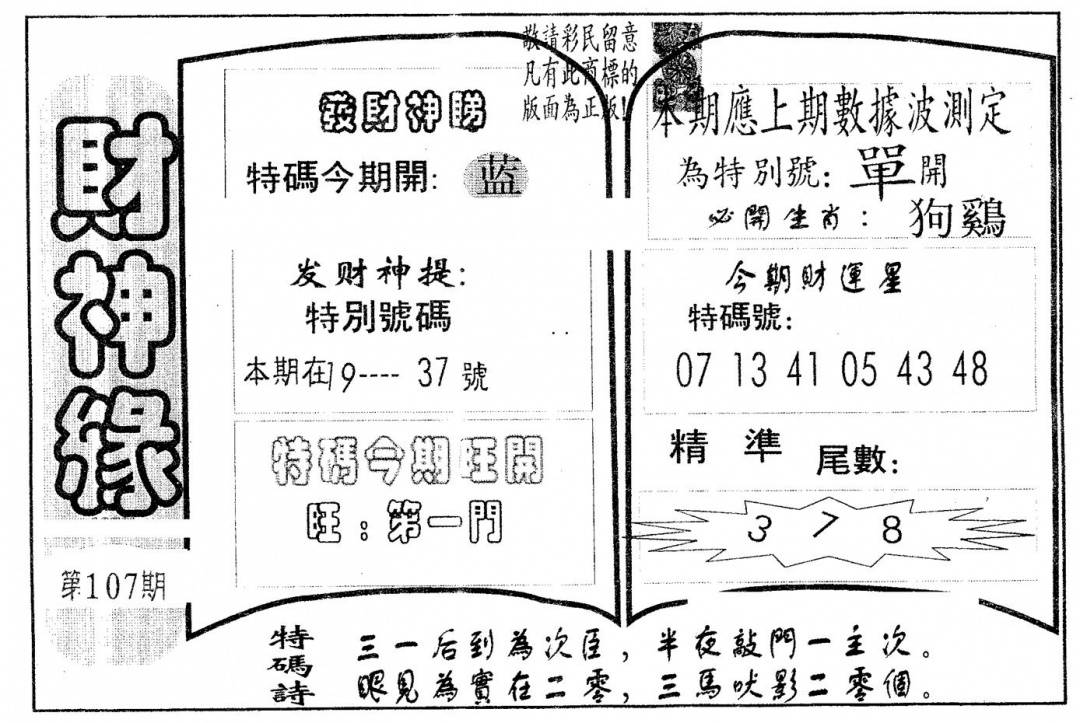 財神緣
第107期
敬請彩民留意
凡有此商標的
版面為正版!
發財神睇
特碼今期開: 蓝
发财神提:
特別號碼
本期在19---- 37 號
特碼今期旺開
旺：第一門
本期應上期數據波測定
為特別號: 單開
必開生肖： 狗鷄
今期財運星
特碼號:
07 13 41 05 43 48
精準 尾數:
3 7 8
特碼詩
三一后到為次臣，半夜敲門一主次。
眼見為實在二零，三馬吠影二零個。